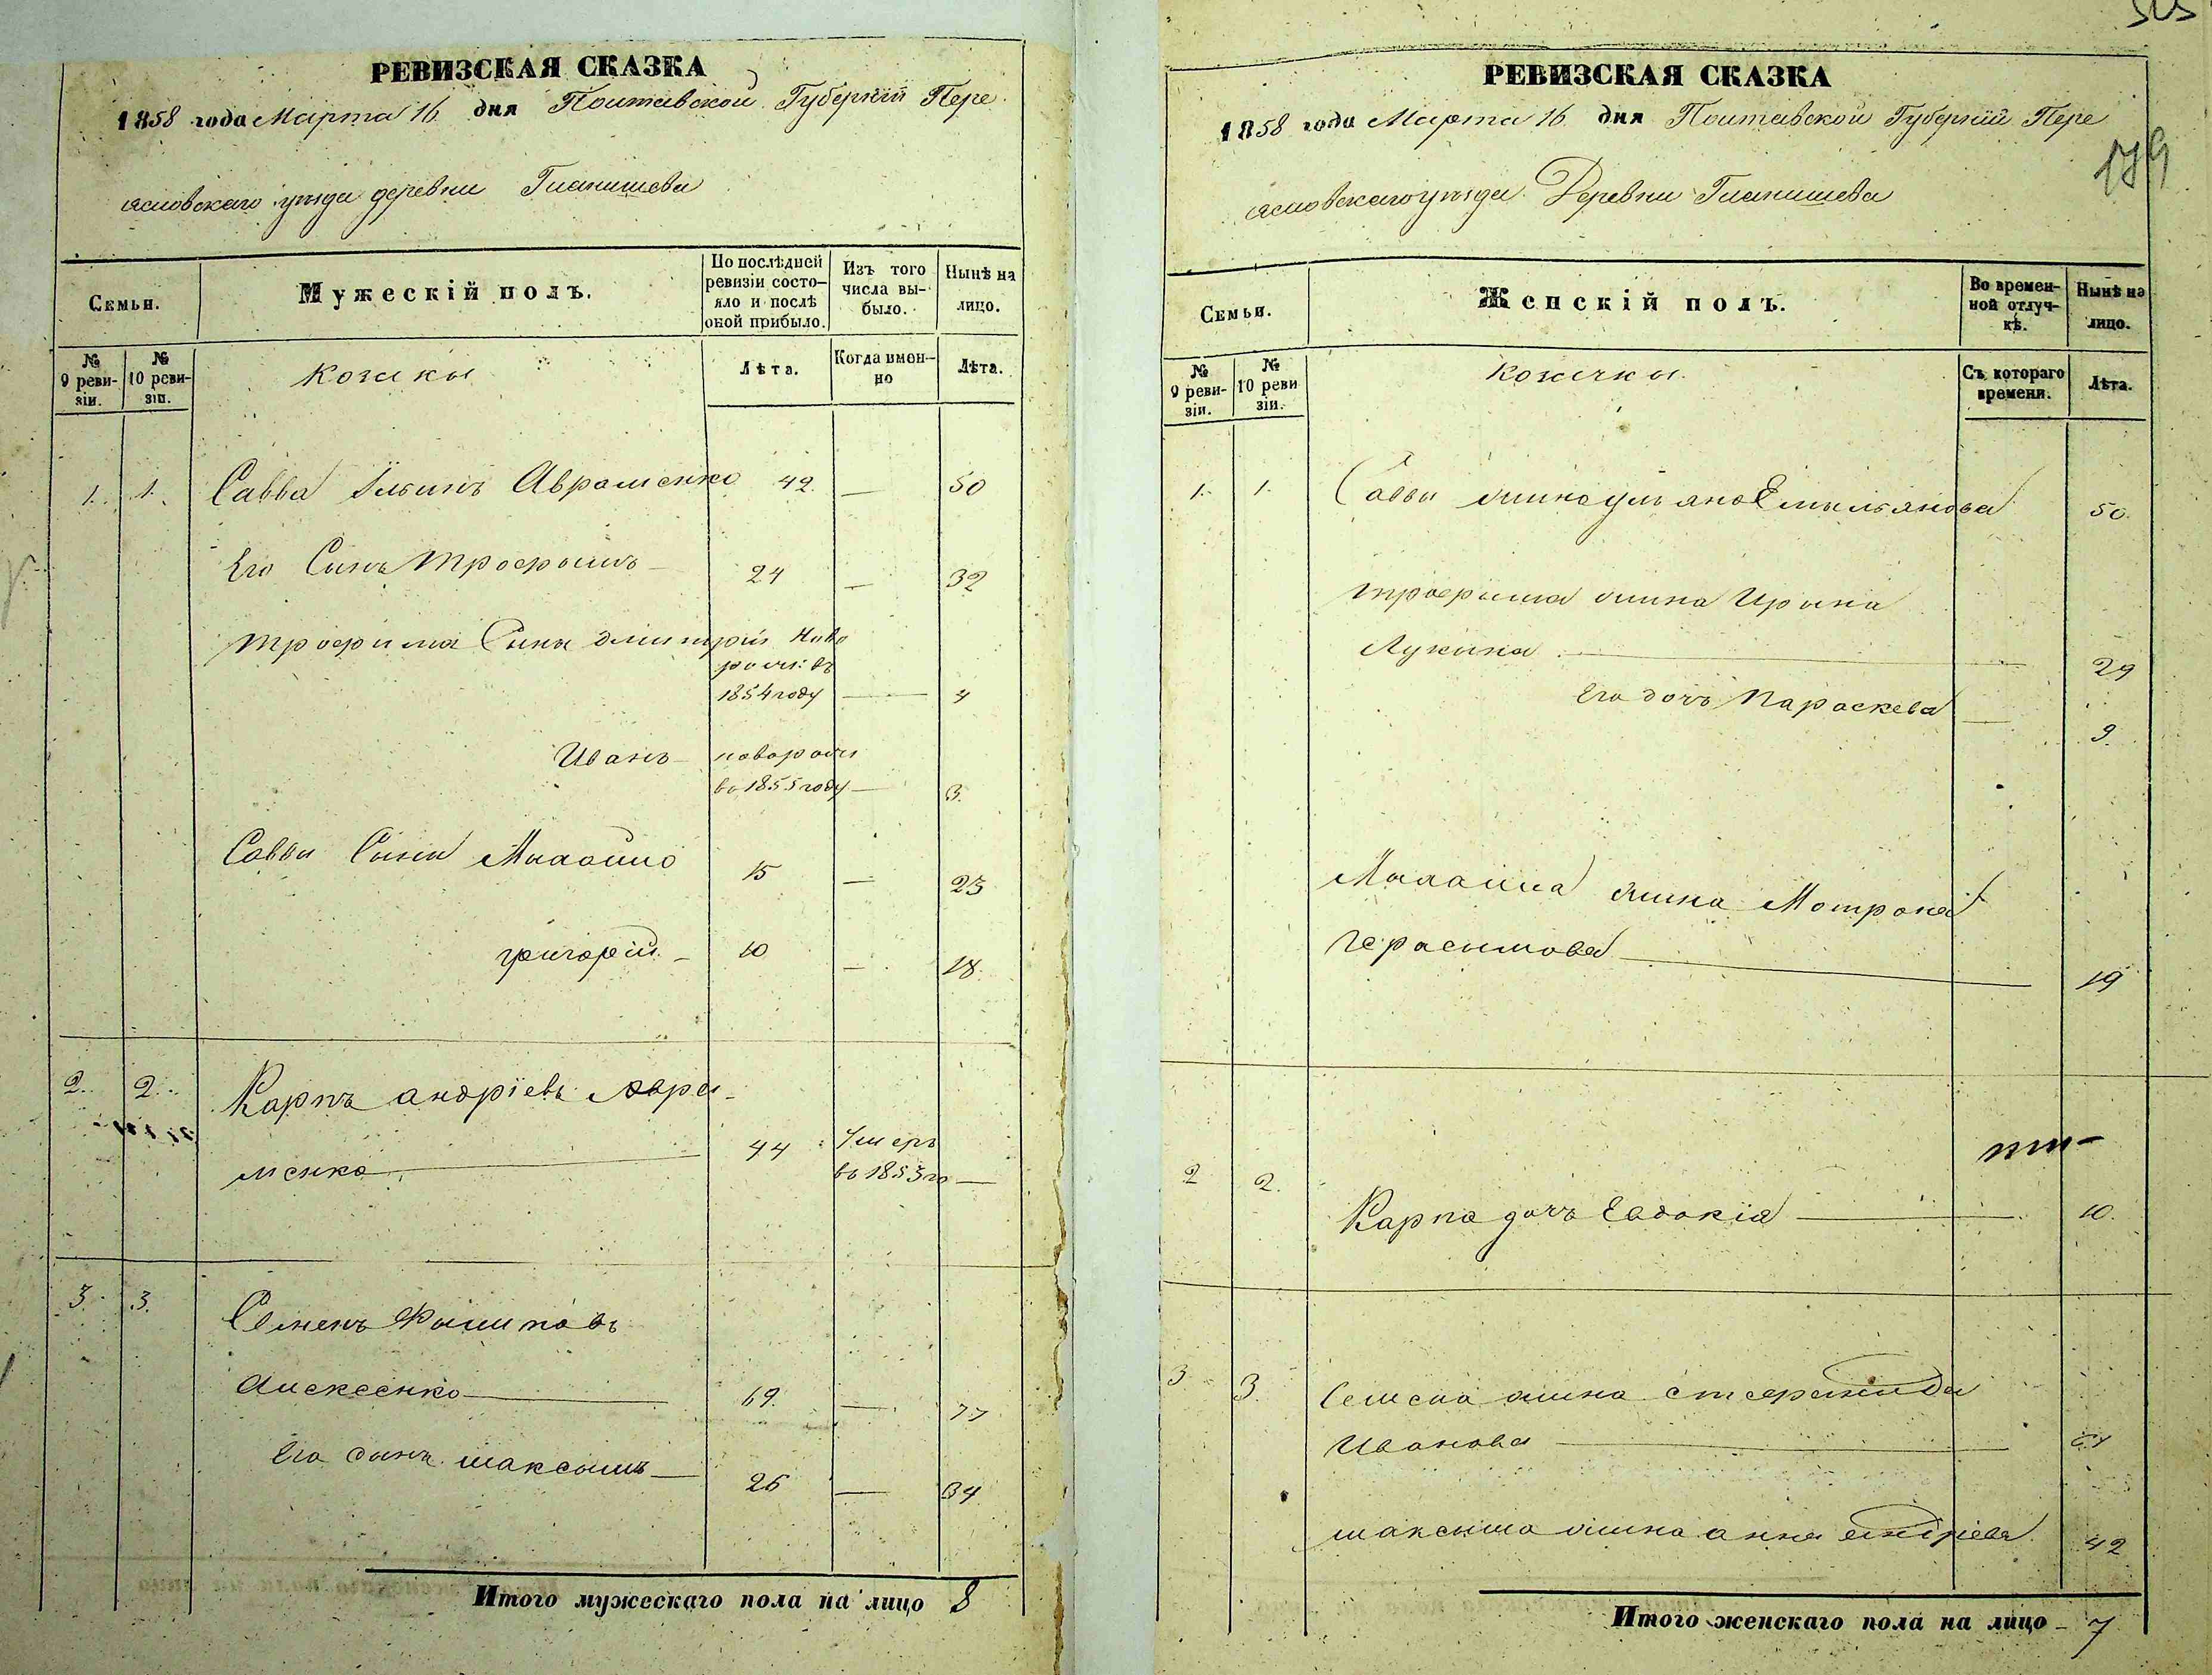 РЕВИЗСКАЯ СКАЗКА
1858 года Марта 16 дня Полтавской Губерніи Пере
яславскаго уѣзда деревни Гланишева
Семьи.
Мужескій полъ.
По послѣдней ревизіи состо-
яло и послѣ оной прибыло.
Изъ того числа вы-
было.
Нынѣ на лицо.
№ 9 реви-
зіи.
№ 10 реви-
зіи.
Козаки
Лѣта.
Когда имен-
но
Лѣта.
1. 1. Савва Ильинъ Авраменко 42. — 50
Его Сынъ Трофымъ — 24 — 32
Трофима Сыны Дмитрій Ново
рож: въ
1854 году — 4
Иванъ — новорож
въ 1855 году — 3.
Саввы Сыны 15 — 23
григорій. — 10 — 18.
2. 2. Карпъ андріевъ Авра-
менко 44 Умеръ
въ 1853 го —
3. 3. Семенъ Филиповъ
Алексеенко 69. — 77
Его сынъ максымъ — 26 — 34
Итого мужескаго пола на лицо 8
РЕВИЗСКАЯ СКАЗКА
179
1858 года Марта 16. дня Полтавской Губерніи Пере
яславскаго уѣзда Деревни Гланишева
Семьи.
Женскій полъ.
Во времен-
ной отлуч-
кѣ.
Нынѣ на лицо.
№ 9 реви-
зіи.
№ 10 реви
зіи.
Козачки.
Съ котораго времени.
Лѣта.
1. 1. Саввы жина ульяна Емыльянова 50.
трофыма жина Ирина
Лукина — 29
Его дочъ Параскева — 9.
жина Мотрона
Герасымова — 19
2 2. Карпа дочъ Евдокія — 10.
3 3. Семена жина стефанида
Иванова —
максыма жина анна 42
Итого женскаго пола на лицо — 7